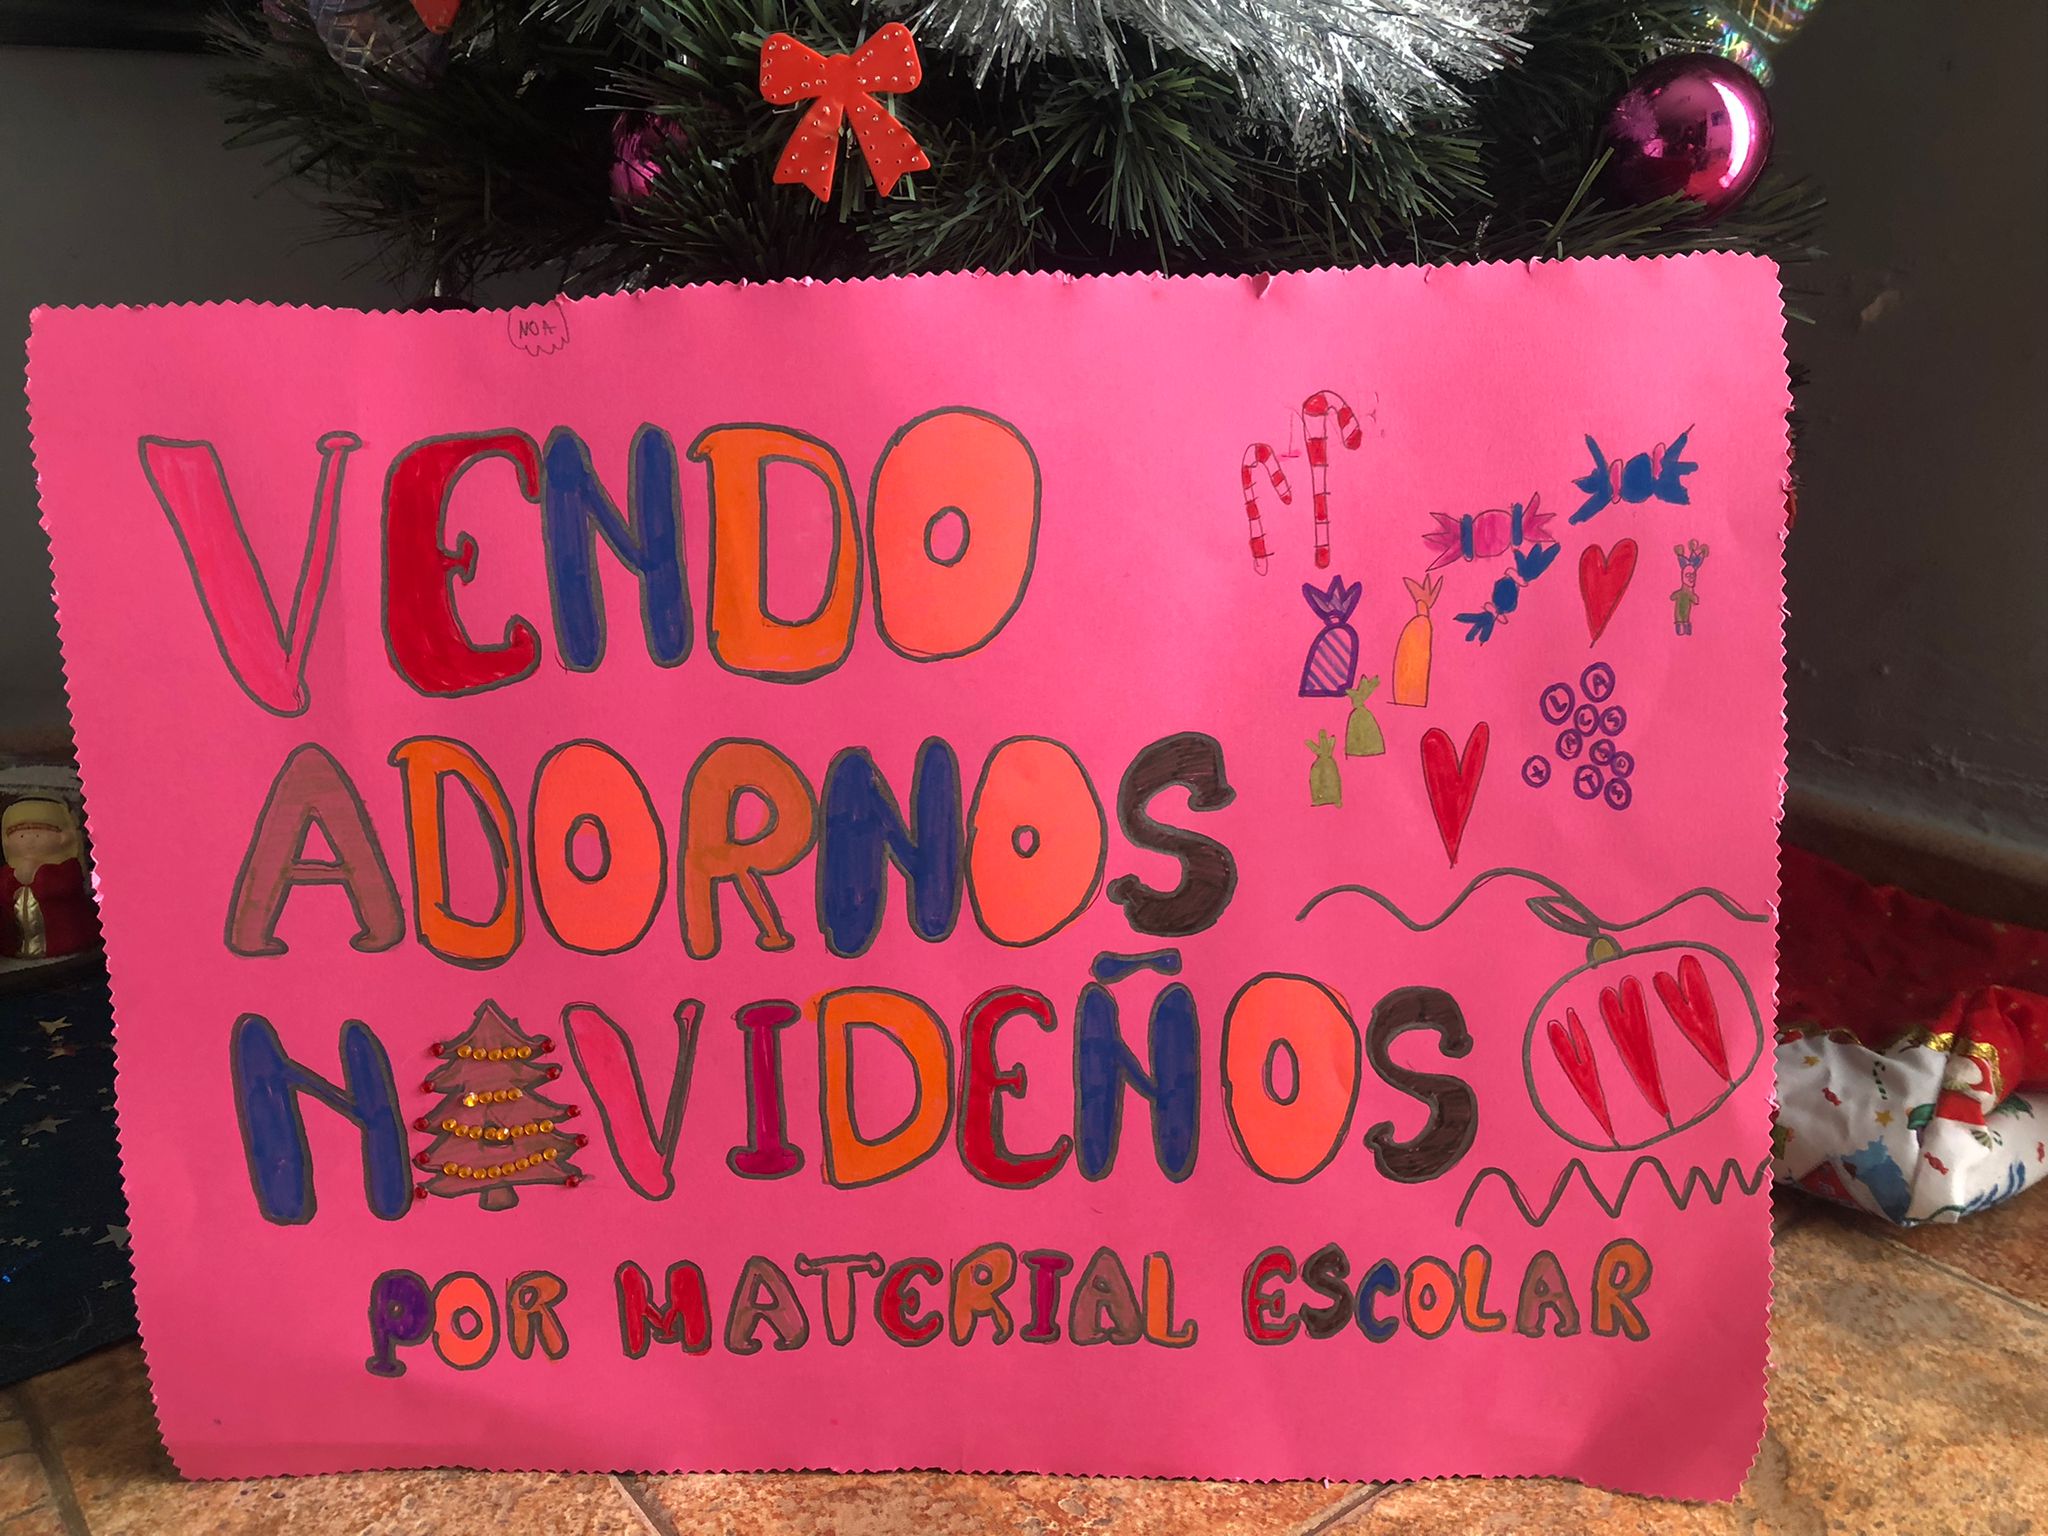 NOA
VENDO
ADORNOS
NAVIDEÑOS
POR MATERIAL ESCOLAR